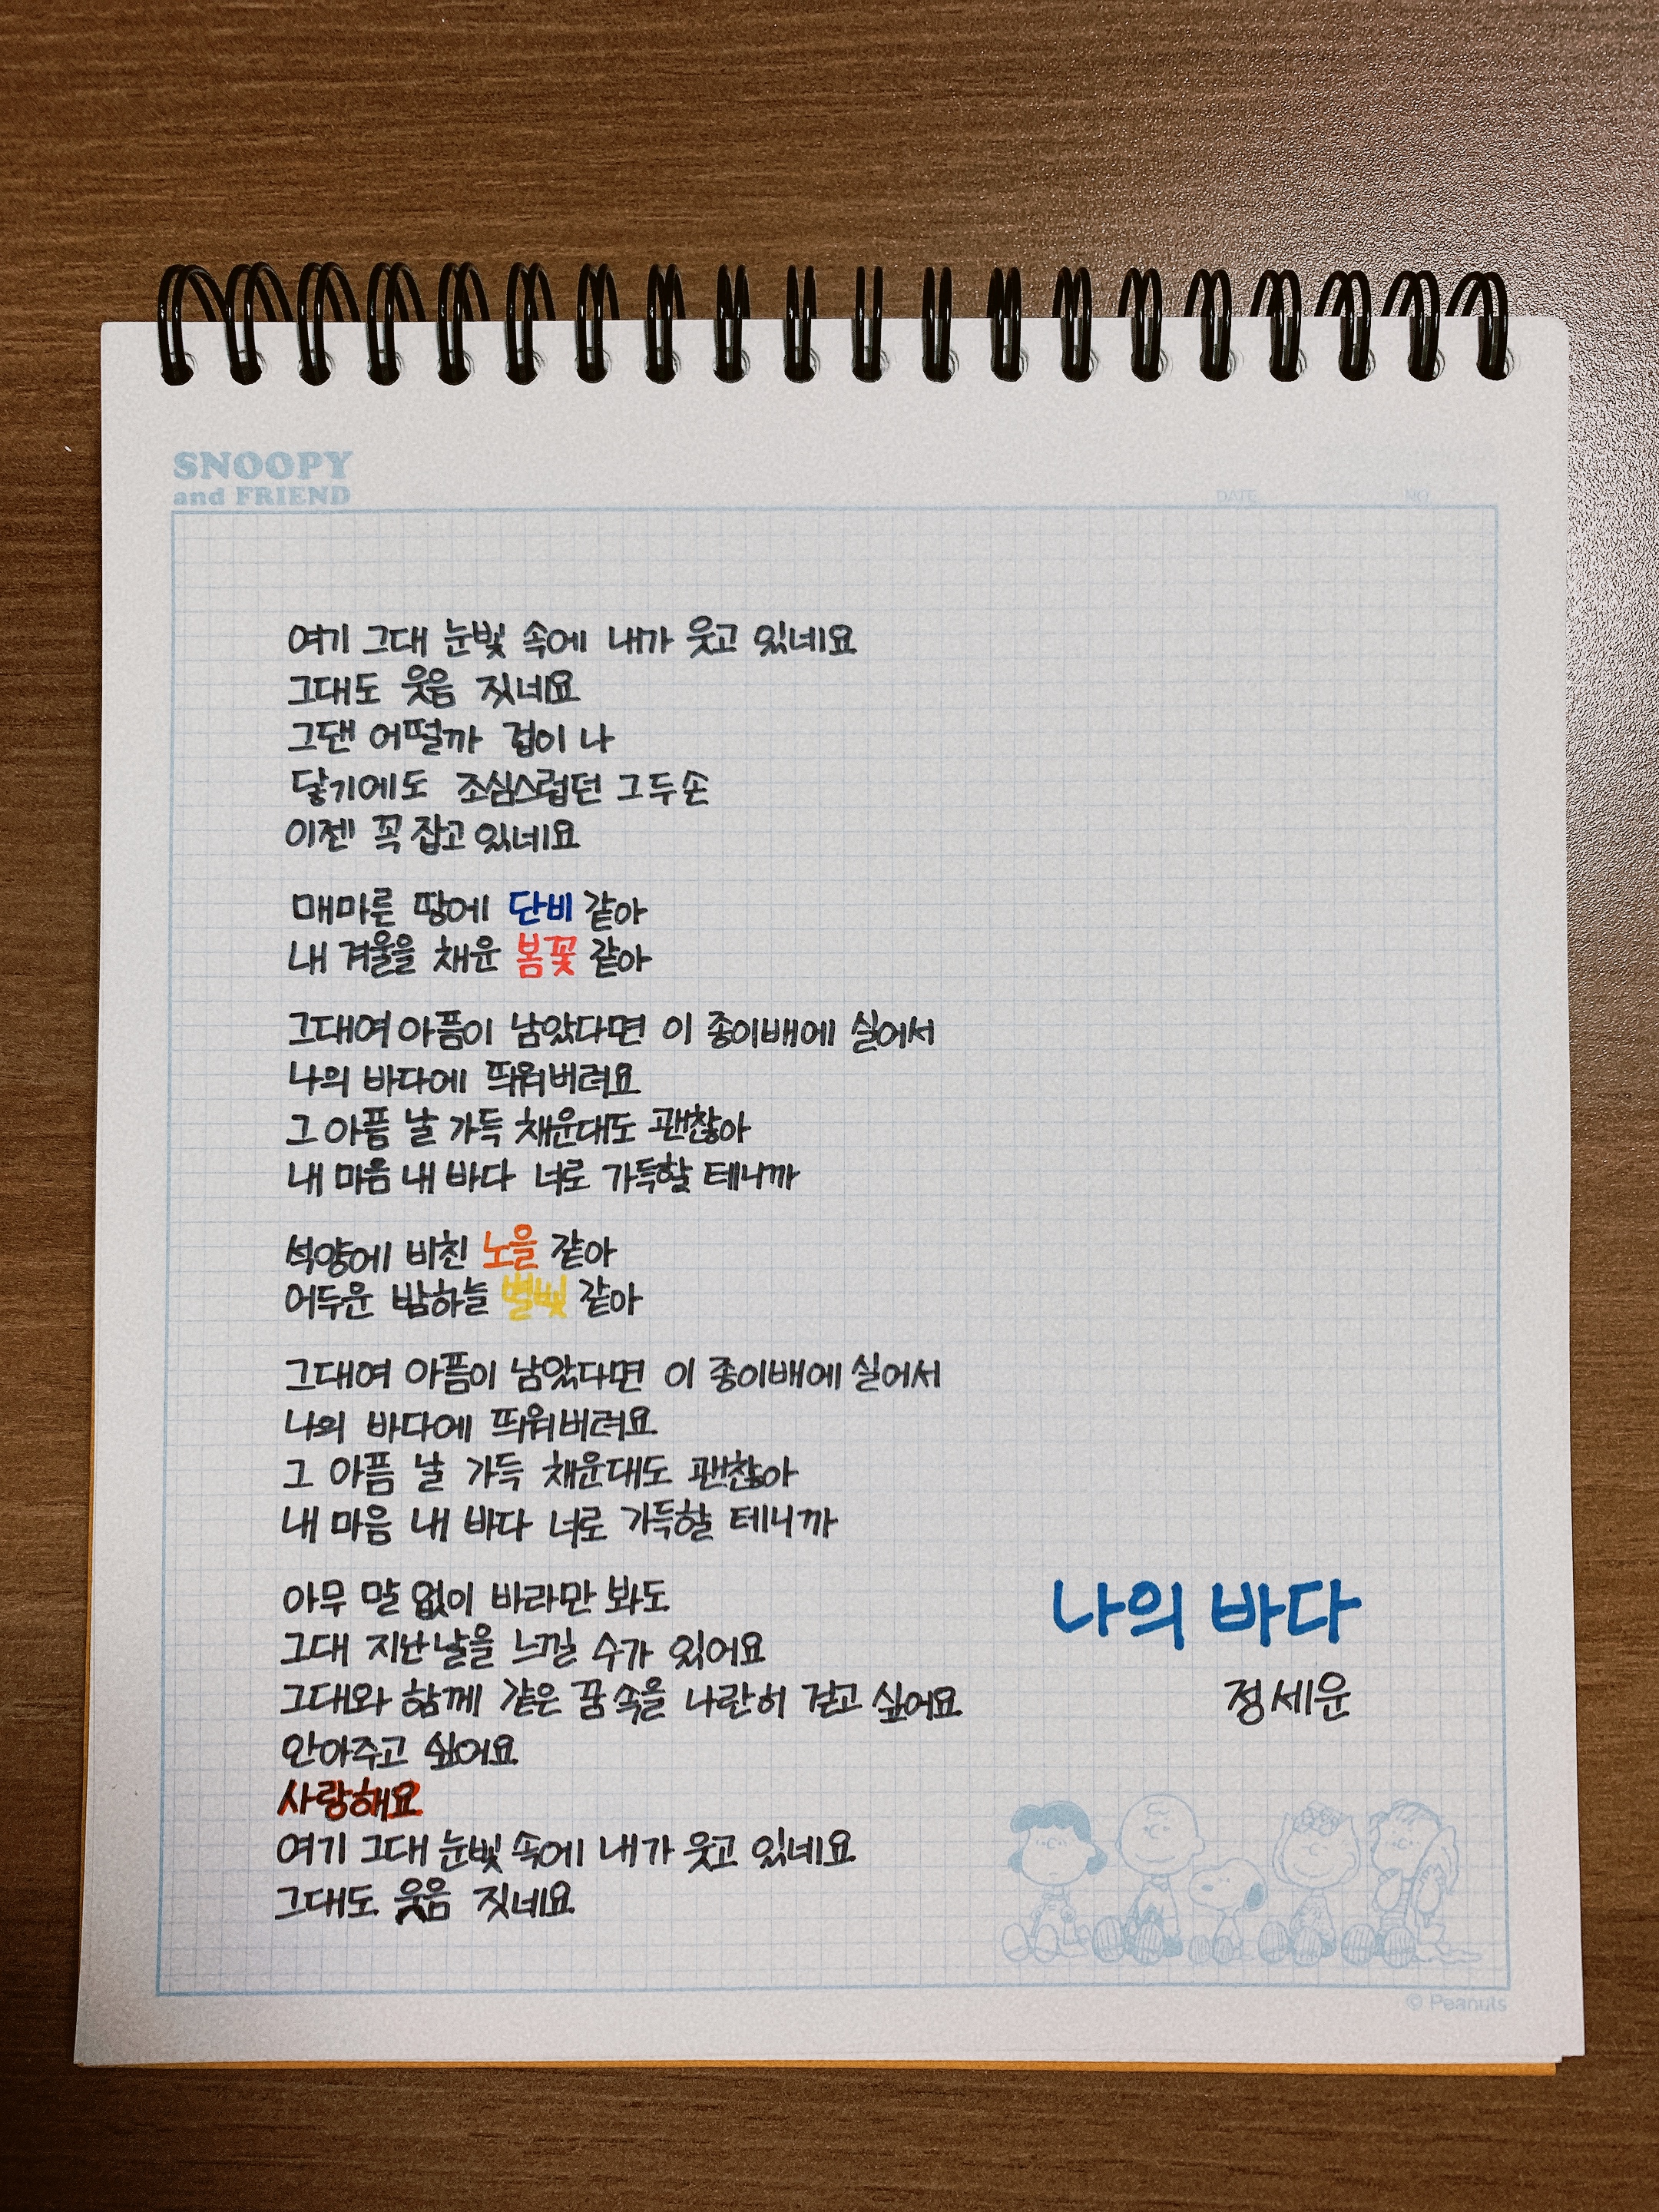 SNOOPY
and FRIEND
DATE
NO
여기 그대 눈빛 속에 내가 웃고 있네요
그대도 웃음 짓네요
그댄 어떨까 겁이 나
닿기에도 조심스럽던 그 두 손
이젠 꼭 잡고 있네요
매마른 땅에 단비 같아
내 겨울을 채운 봄꽃 같아
그대여 아픔이 남았다면 이 종이배에 실어서
나의 바다에 띄워버려요
그 아픔 날 가득 채운대도 괜찮아
내 마음 내 바다 너로 가득할 테니까
석양에 비친 노을 같아
어두운 밤하늘 별빛 같아
그대여 아픔이 남았다면 이 종이배에 실어서
나의 바다에 띄워버려요
그 아픔 날 가득 채운대도 괜찮아
내 마음 내 바다 너로 가득할 테니까
아무 말 없이 바라만 봐도
그대 지난날을 느낄 수가 있어요
그대와 함께 같은 꿈 속을 나란히 걷고 싶어요
안아주고 싶어요
사랑해요
여기 그대 눈빛 속에 내가 웃고 있네요
그대도 웃음 짓네요
나의 바다
정세운
© Peanuts